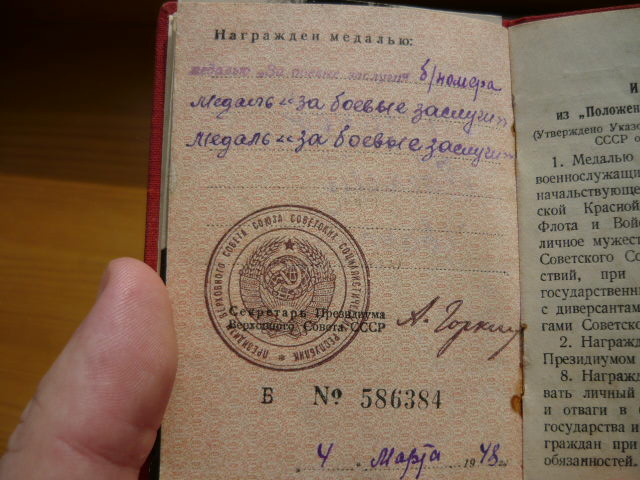 Награжден медалью:
медалью „За боевые заслуги б/номера
медаль „за боевые заслуги
медаль „за боевые заслуги
ПРЕЗИДИУМ ВЕРХОВНОГО СОВЕТА СОЮЗА СОВЕТСКИХ СОЦИАЛИСТИЧЕСКИХ РЕСПУБЛИК
Секретарь Президиума
Верховного Совета СССР
А. Горкин
Б № 586384
„ 4 „ Марта 1948 г.
И
из „Положен
(Утверждено Указо
СССР о
1. Медалью
военнослужащи
начальствующе
ской Красной
Флота и Войс
личное мужест
Советского Со
ствий, при
государственн
с диверсантам
гами Советско
2. Награжд
Президиумом
8. Награжд
вать личный
и отваги в
государства и
граждан при
обязанностей.